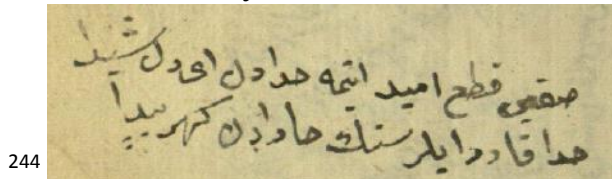 صقین قطع امید ایتمه خدادن ای دل شیدا
خدا قادردر ایلر سنك خارادن كهر پیدا
244